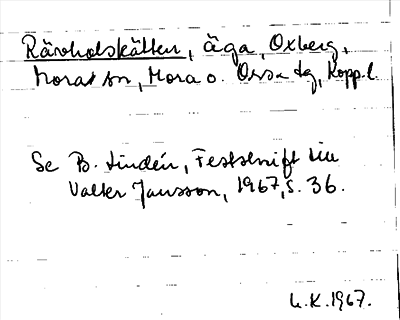 Rävholskätten, äga, Oxberg,
Mora sn, Mora o. Orsa tg, Kopp.l.
Se B. Lindén, Festskrift till
Valter Jansson, 1967, s. 36.
1967.